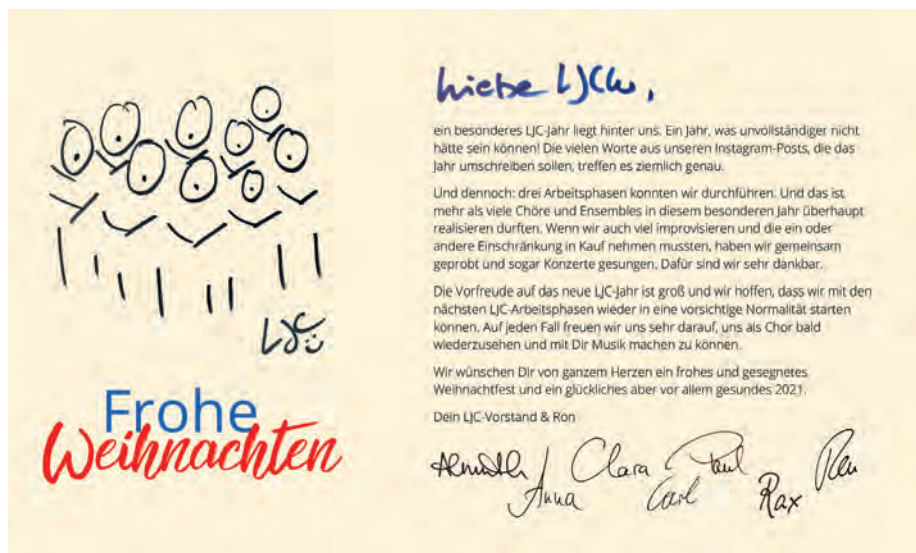 LJC
Frohe
Weihnachten
Liebe LJCler,
ein besonderes LJC-Jahr liegt hinter uns. Ein Jahr, was unvollständiger nicht
hätte sein können! Die vielen Worte aus unseren Instagram-Posts, die das
Jahr umschreiben sollen, treffen es ziemlich genau.
Und dennoch: drei Arbeitsphasen konnten wir durchführen. Und das ist
mehr als viele Chöre und Ensembles in diesem besonderen Jahr überhaupt
realisieren durften. Wenn wir auch viel improvisieren und die ein oder
andere Einschränkung in Kauf nehmen mussten, haben wir gemeinsam
geprobt und sogar Konzerte gesungen. Dafür sind wir sehr dankbar.
Die Vorfreude auf das neue LJC-Jahr ist groß und wir hoffen, dass wir mit den
nächsten LJC-Arbeitsphasen wieder in eine vorsichtige Normalität starten
können. Auf jeden Fall freuen wir uns sehr darauf, uns als Chor bald
wiederzusehen und mit Dir Musik machen zu können.
Wir wünschen Dir von ganzem Herzen ein frohes und gesegnetes
Weihnachtfest und ein glückliches aber vor allem gesundes 2021.
Dein LJC-Vorstand & Ron
Almuth Clara Paul Ron
Anna Carl Rax